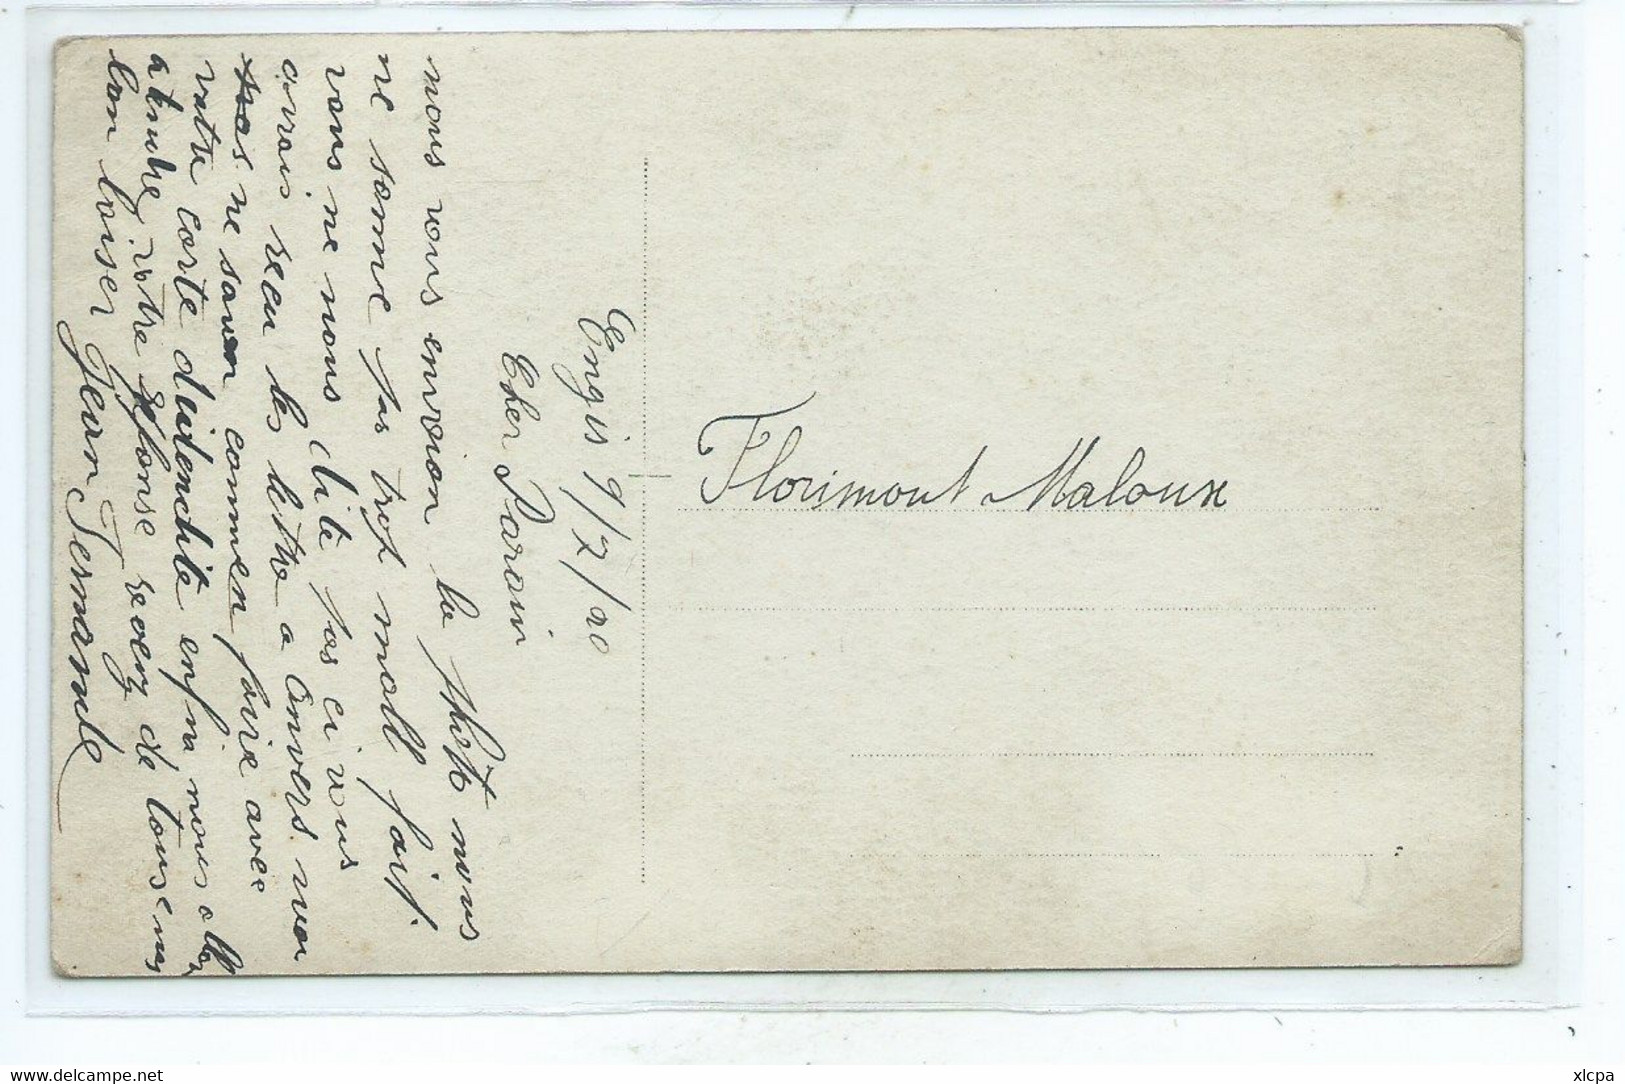 Engis 9/7/20
Cher Parain
nous vous envoion la phot nous
ne some pas trop mall fait.
vous ne nous dite pas ci vous
avais reçu les lettre a Anvers. nou
ne saven commen faire avec
votre carte d'uidenctite enfin nous allon
atendre votre reponse recevez de tous
bon baiser Jean Fernande
Florimont Maloux
www.delcampe.net
xlcpa